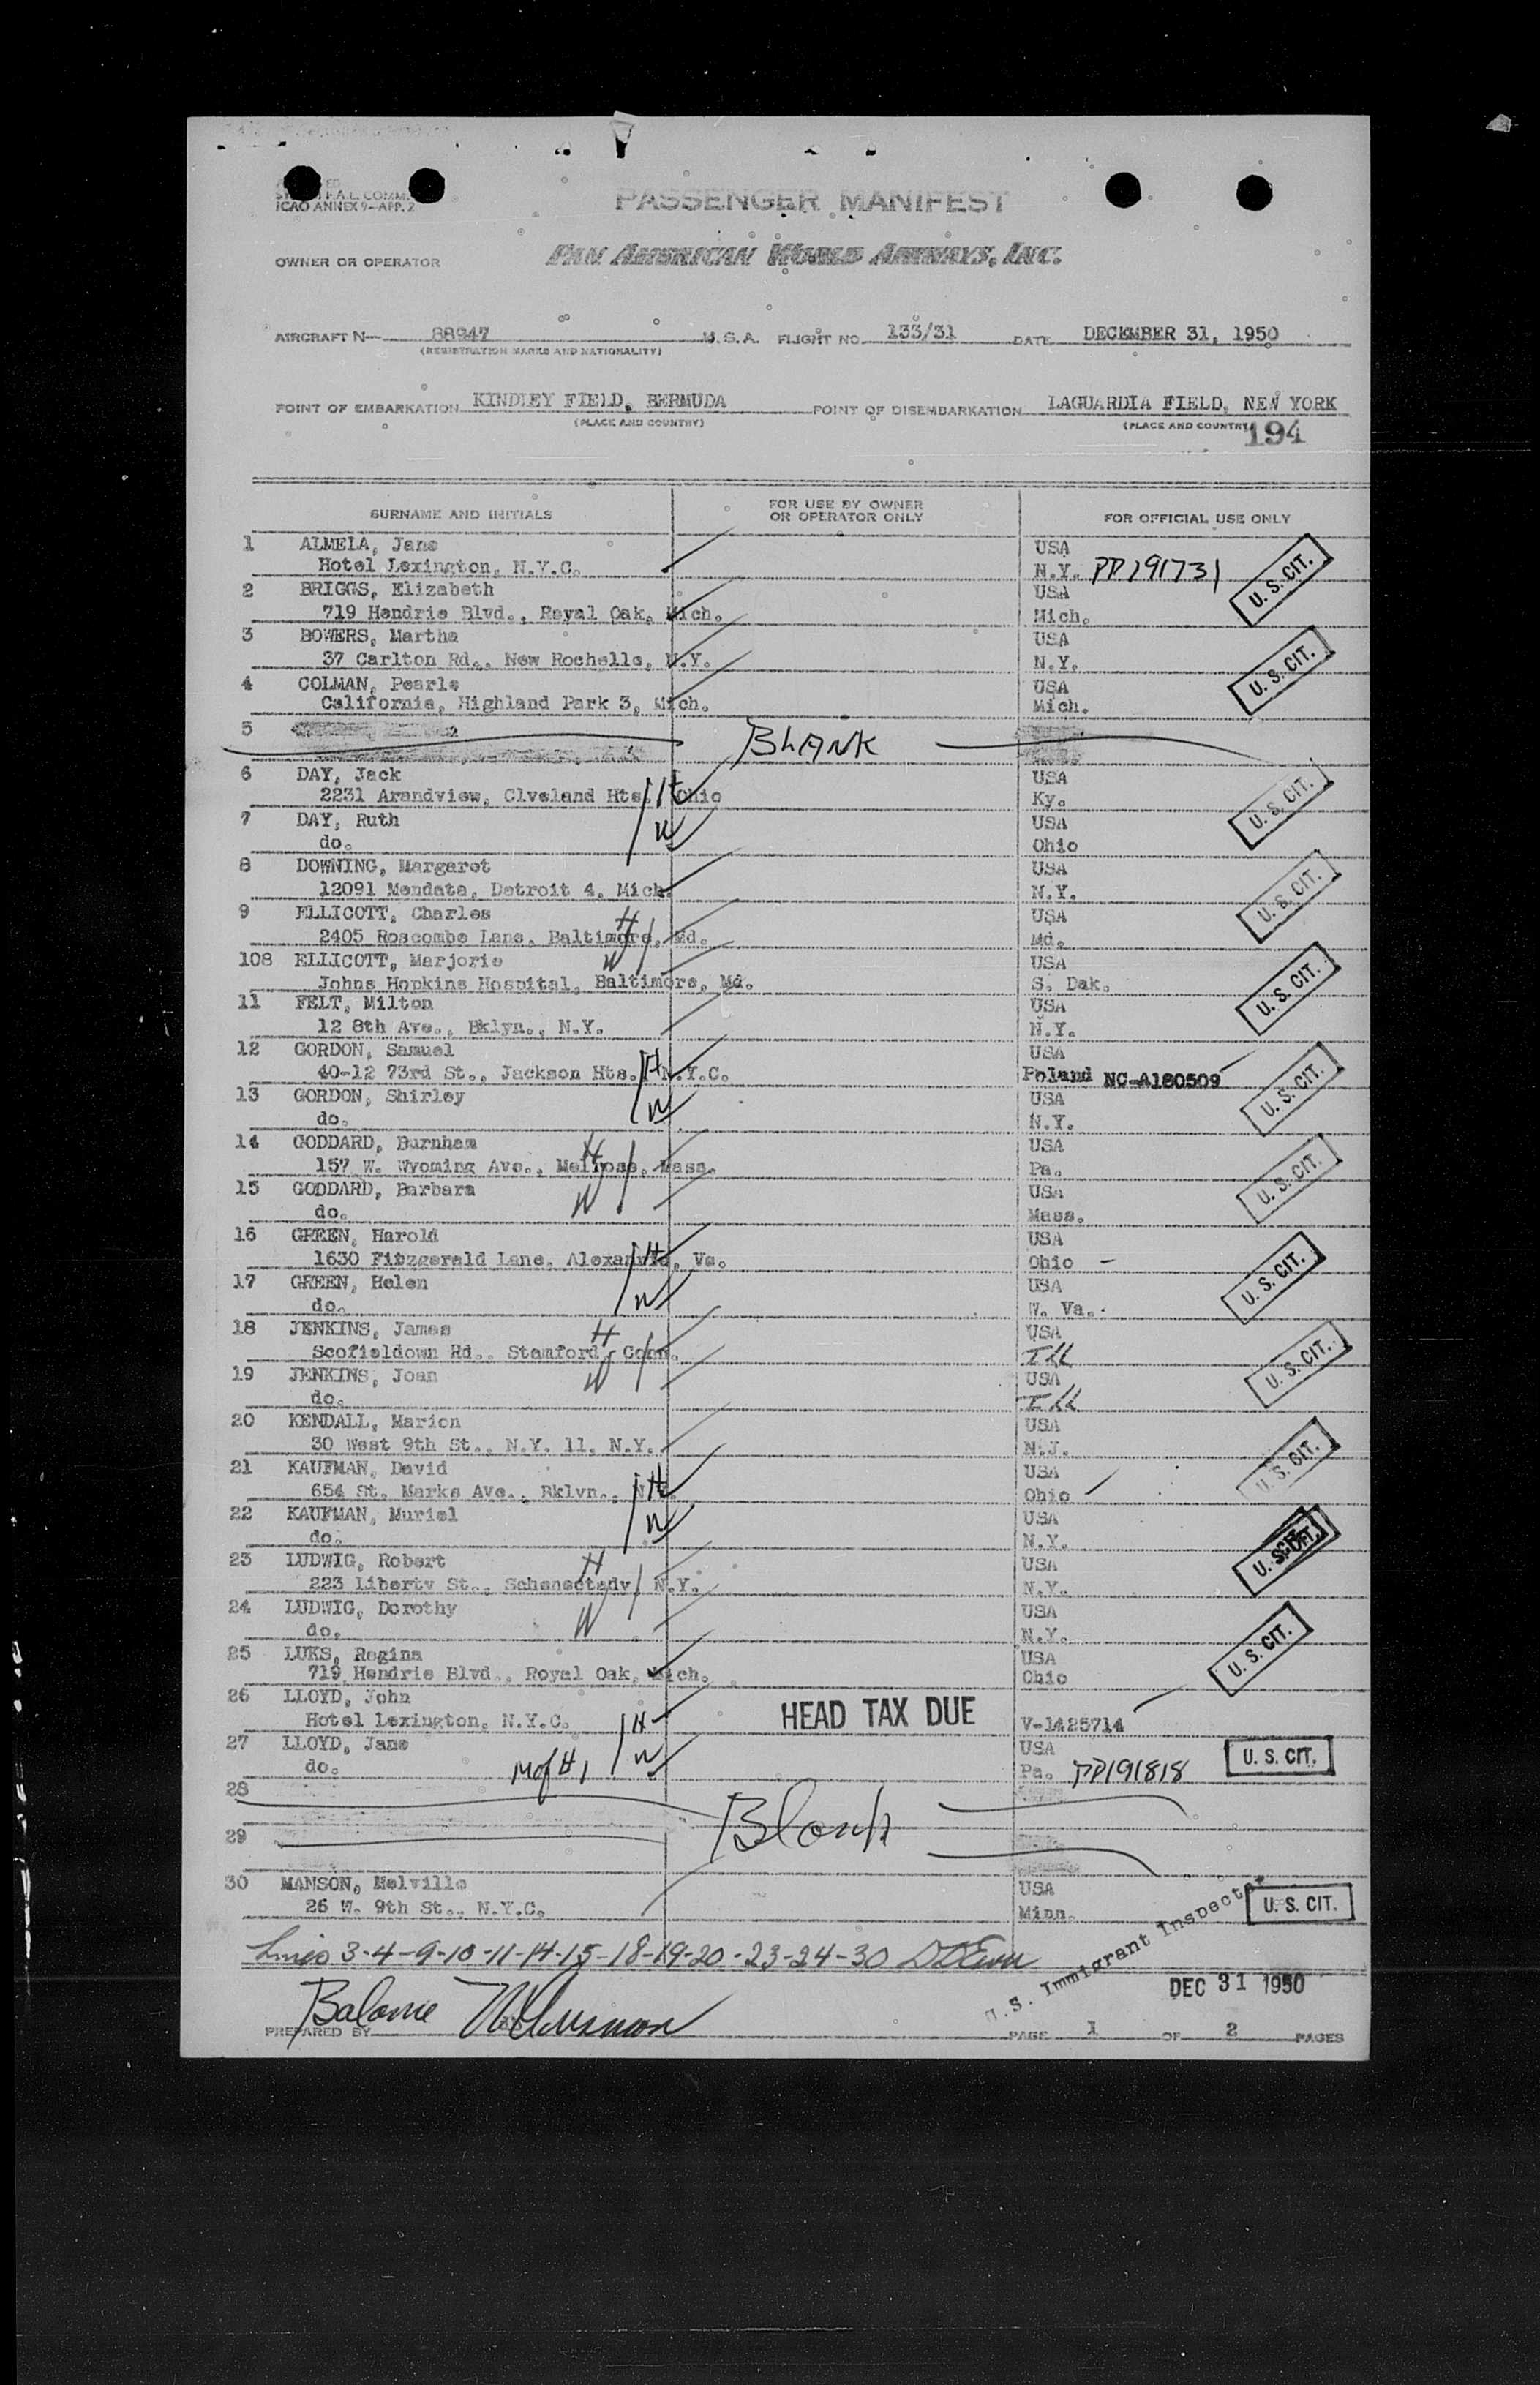 ICAO ANNEX 9-APP. 2
PASSENGER MANIFEST
OWNER OR OPERATOR PAN AMERICAN WORLD AIRWAYS, INC.
AIRCRAFT N— 88947 U.S.A. FLIGHT NO. 133/31 DATE DECEMBER 31, 1950
(REGISTRATION MARKS AND NATIONALITY)
POINT OF EMBARKATION KINDLEY FIELD, BERMUDA POINT OF DISEMBARKATION LAGUARDIA FIELD, NEW YORK
(PLACE AND COUNTRY) (PLACE AND COUNTRY)
194
SURNAME AND INITIALS FOR USE BY OWNER OR OPERATOR ONLY FOR OFFICIAL USE ONLY
1 ALMELA, Jane USA
Hotel Lexington, N.Y.C. N.Y. PP191731 U. S. CIT.
2 BRIGGS, Elizabeth USA
719 Hendrie Blvd., Royal Oak, Mich. Mich.
3 BOWERS, Martha USA
37 Carlton Rd., New Rochelle, N.Y. N.Y. U. S. CIT.
4 COLMAN, Pearle USA
California, Highland Park 3, Mich. Mich.
5 BLANK
6 DAY, Jack USA
2231 Arandview, Clveland Hts. Ohio H Ky. U. S. CIT.
7 DAY, Ruth USA
do. W Ohio
8 DOWNING, Margaret USA
12091 Mendata, Detroit 4, Mich. N.Y. U. S. CIT.
9 ELLICOTT, Charles H USA
2405 Roscombe Lane, Baltimore, Md. Md.
108 ELLICOTT, Marjorie W USA
Johns Hopkins Hospital, Baltimore, Md. S. Dak. U. S. CIT.
11 FELT, Milton USA
12 8th Ave., Bklyn., N.Y. N.Y.
12 GORDON, Samuel USA
40-12 73rd St., Jackson Hts. N.Y.C. H Poland NC-A180509 U. S. CIT.
13 GORDON, Shirley USA
do. W N.Y.
14 GODDARD, Burnham H USA
157 W. Wyoming Ave., Melrose, Mass. Pa. U. S. CIT.
15 GODDARD, Barbara W USA
do. Mass.
16 GREEN, Harold USA
1630 Fitzgerald Lane, Alexandria, Va. H Ohio U. S. CIT.
17 GREEN, Helen USA
do. W W. Va.
18 JENKINS, James H USA
Scofieldown Rd., Stamford, Conn. Ill U. S. CIT.
19 JENKINS, Joan W USA
do. Ill
20 KENDALL, Marion USA
30 West 9th St., N.Y. 11, N.Y. N.J. U. S. CIT.
21 KAUFMAN, David USA
654 St. Marks Ave., Bklyn., H Ohio
22 KAUFMAN, Muriel USA
do. W N.Y. U. S. CIT.
23 LUDWIG, Robert H USA
223 Liberty St., Schenectady, N.Y. N.Y.
24 LUDWIG, Dorothy W USA
do. N.Y. U. S. CIT.
25 LUKS, Regina USA
719 Hendrie Blvd., Royal Oak, Mich. Ohio
26 LLOYD, John
Hotel Lexington, N.Y.C. H HEAD TAX DUE V-1425714
27 LLOYD, Jane USA
do. W Pa. PP191818 U. S. CIT.
28 Blank
29
30 MANSON, Melville USA
26 W. 9th St., N.Y.C. Minn. U. S. CIT.
Lines 3-4-9-10-11-14-15-18-19-20-23-24-30
U.S. Immigrant Inspector
DEC 31 1950
Balance
PREPARED BY PAGE 1 OF 2 PAGES